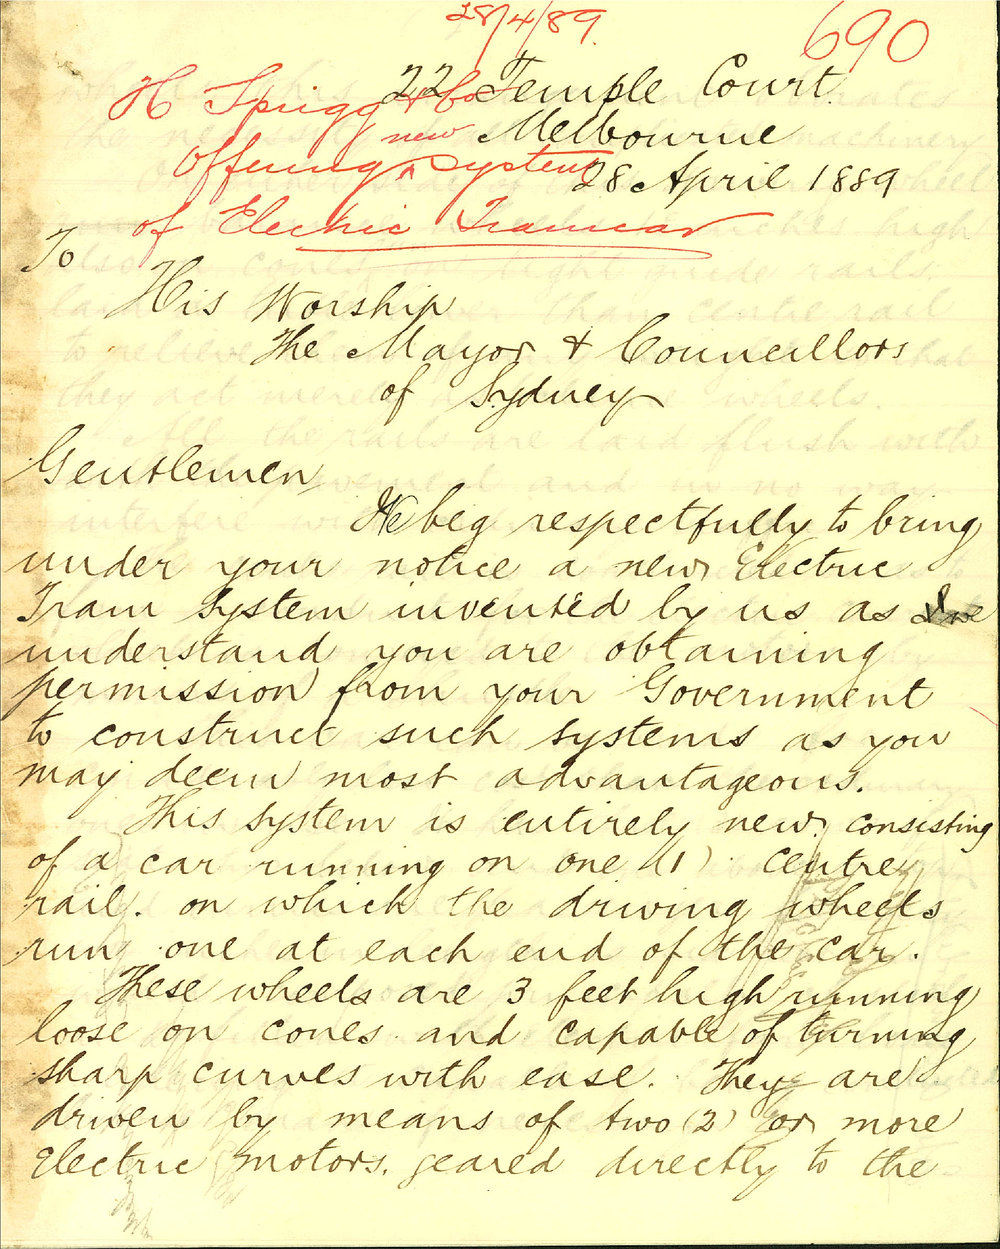 28/4/89.
690
H Sprigg & Co
Offering new System
of Electric Tramcar
22 Temple Court
Melbourne
28 April 1889
To
His Worship
The Mayor & Councillors
of Sydney
Gentlemen
We beg respectfully to bring
under your notice a new Electric
Tram System invented by us as we
understand you are obtaining
permission from your Government
to construct such systems as you
may deem most advantageous.
This system is entirely new. consisting
of a car running on one (1) centre
rail. on which the driving wheels
run one at each end of the car.
These wheels are 3 feet high running
loose on cones and capable of turning
sharp curves with ease. They are
driven by means of two (2) or more
Electric motors. geared directly to the